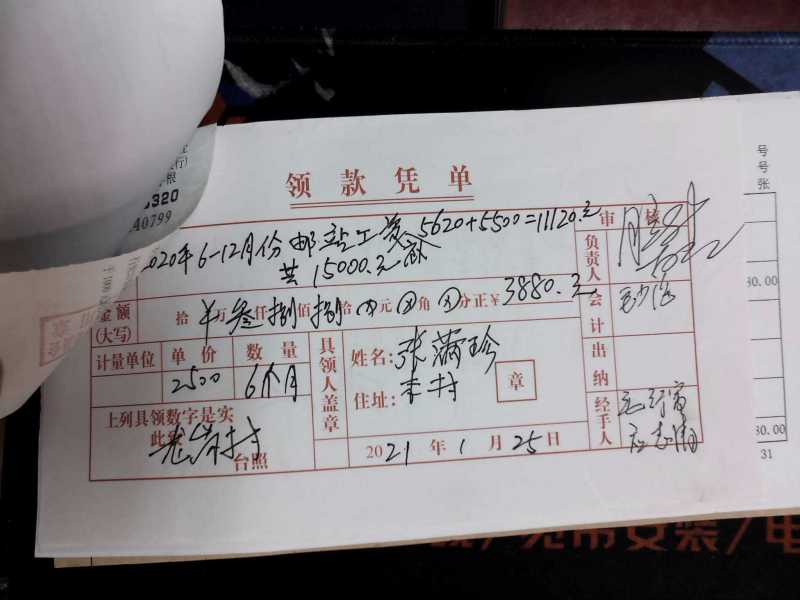 领款凭单
320
A0799
2020年6-12月份邮站工资 5620+5500=11120.元
共15000.元
审核
负责人
金额(大写) 拾 万叁仟捌佰捌拾 元 角 分正¥3880.元
会计
计量单位 单价 数量
2500 6个月
具领人盖章
姓名:张满珍
住址:本村
章
出纳
上列具领数字是实
此致
台照
2021年1月25日
经手人
号
号
张
30.00
30.00
31